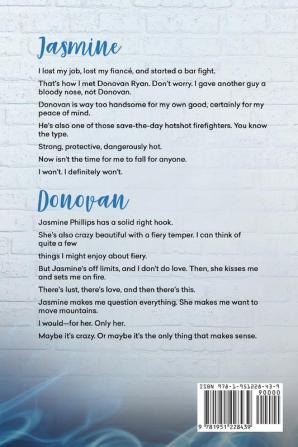 Jasmine
I lost my job, lost my fiancé, and started a bar fight.
That's how I met Donovan Ryan. Don't worry. I gave another guy a
bloody nose, not Donovan.
Donovan is way too handsome for my own good, certainly for my
peace of mind.
He's also one of those save-the-day hotshot firefighters. You know
the type.
Strong, protective, dangerously hot.
Now isn't the time for me to fall for anyone.
I won't. I definitely won't.
Donovan
Jasmine Phillips has a solid right hook.
She's also crazy beautiful with a fiery temper. I can think of
quite a few
things I might enjoy about fiery.
But Jasmine's off limits, and I don't do love. Then, she kisses me
and sets me on fire.
There's lust, there's love, and then there's this.
Jasmine makes me question everything. She makes me want to
move mountains.
I would—for her. Only her.
Maybe it's crazy. Or maybe it's the only thing that makes sense.
ISBN 978-1-951228-43-9
90000
9 781951 228439